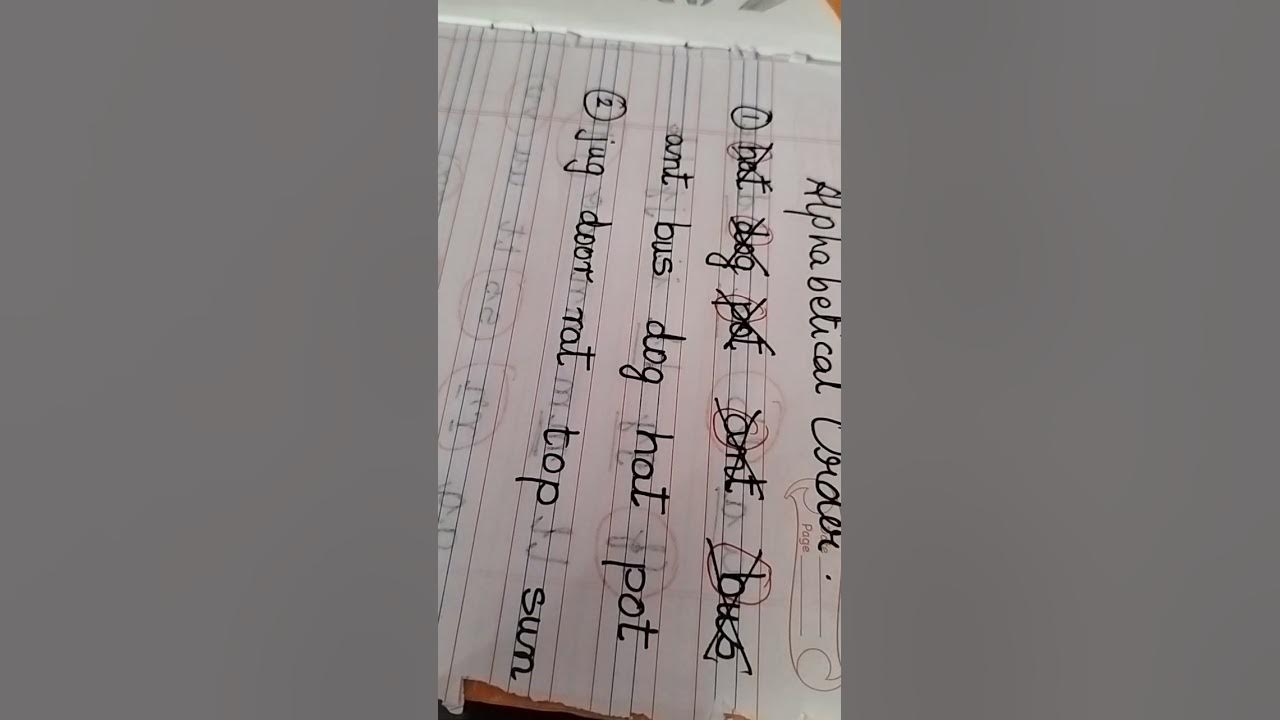 Alphabetical Order.
Page
① hat dog pot ant bus
ant bus dog hat pot
② jug door rat top sum